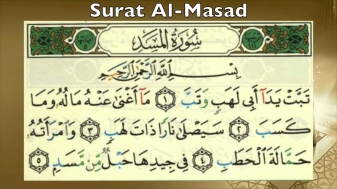 Surat Al-Masad
سُورَةُ المَسَدِ
بِسْمِ اللَّهِ الرَّحْمَٰنِ الرَّحِيمِ
تَبَّتْ يَدَآ أَبِي لَهَبٍ وَتَبَّ ١ مَآ أَغْنَىٰ عَنْهُ مَالُهُ وَمَا
كَسَبَ ٢ سَيَصْلَىٰ نَارًا ذَاتَ لَهَبٍ ٣ وَامْرَأَتُهُ
حَمَّالَةَ الْحَطَبِ ٤ فِي جِيدِهَا حَبْلٌ مِّن مَّسَدٍ ٥